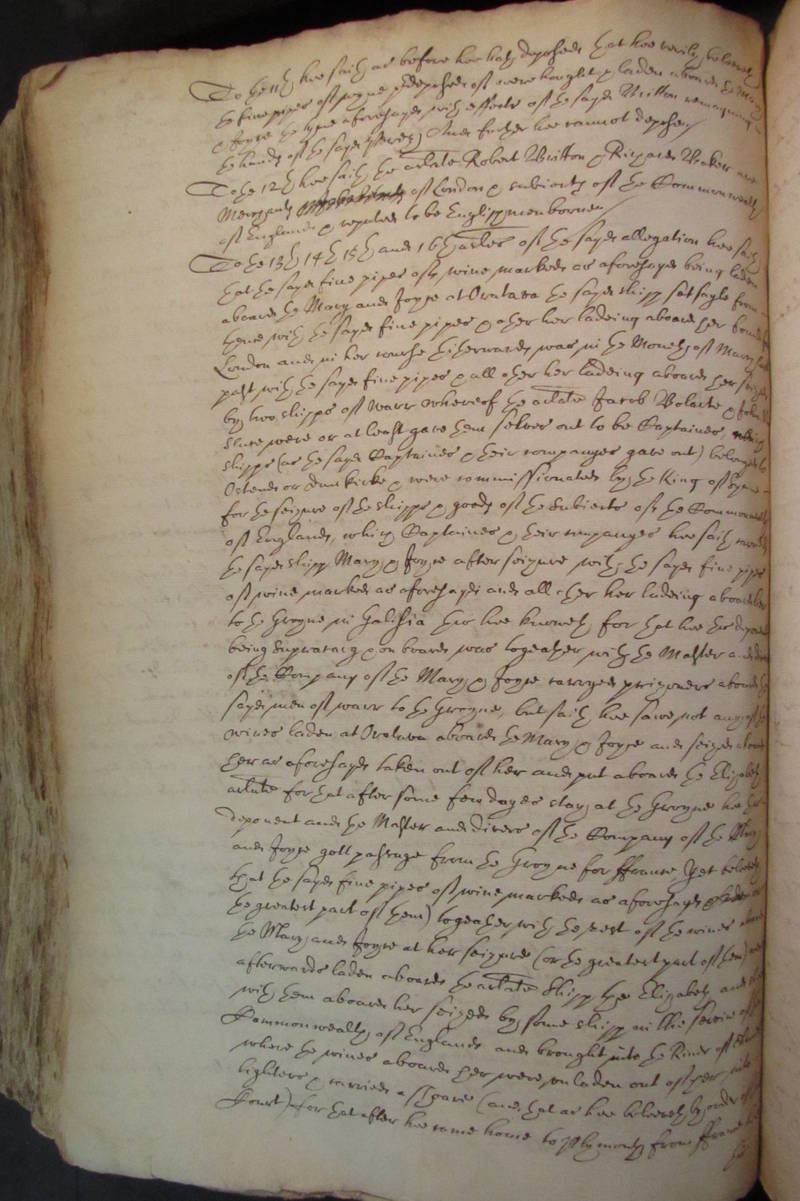 To the 11th hee saith as before hee hath deposed that hee verily beleeveth
the five pipes of wyne predeposed of were bought & laden aboard the Mary
& Joyce the tyme aforesayd with effects of the sayd Britton remayning in
the hands of the sayd And further hee cannot depose
To the 12th hee saith the arlate Robert Britton & Richard Baker are
Merchants of London & subiects of the Commonwealth
of England & reputed to be Englishmen borne
To the 13th 14th 15th and 16th arles of the sayd allegation hee saith
that the sayd five pipes of wine marked as aforesayd being laden
aboard the Mary and Joyce at Oratava the sayd shipp sett sayle from
thence with the sayd five pipes & other her ladeing aboard her bound for
London and in her course hitherwards was in the Moneth of March last
past with the sayd five pipes & all other her ladeing aboard her seized
by two shipps of warr whereof the arlate Jacob & John
were or at least gave them selves out to be Captaines,
shipps (as the sayd Captaines & their companyes gave out) belonged to
Ostend or Dunkirke & were commissionated by the King of Spaine
for the seizure of the shipps & goods of the Subiects of the Commonwealth
of England, which Captaines & their companyes hee saith carried
the sayd shipp Mary & Joyce after seizure with the sayd five pipes
of wine marked as aforesayd and all other her ladeing aboard her
to the Groyne in Galisia this hee knoweth for that hee this deponent
being & on board was togeather with the Master and
of the Company of the Mary & Joyce carryed prizoners aboard the
sayd men of warr to the Groyne, but saith hee sawe not any of the
wines laden at Oratava aboard the Mary & Joyce and seized aboard
her as aforesayd taken out of her and put aboard the Elizabeth
arlate for that after some few dayes stay at the Groyne hee this
deponent and the Master and divers of the Company of the Mary
and Joyce gott passage from the Groyne for ffrance Yet beleeveth
that the sayd five pipes of wine marked as aforesayd
the greatest part of them) togeather with the rest of the wines aboard
the Mary and Joyce at her seizure (or the greatest part of them) were
afterwards laden aboard the arlate Shipp the Elizabeth and
with them aboard her seized by some shipp in the service of the
Commonwealth of England and brought into the River of
where the wines aboard her were unladen out of her into
lighters & carried a shoare (and that as hee beleeveth by order of
Court) for that after hee came home to Plymouth from ffrance